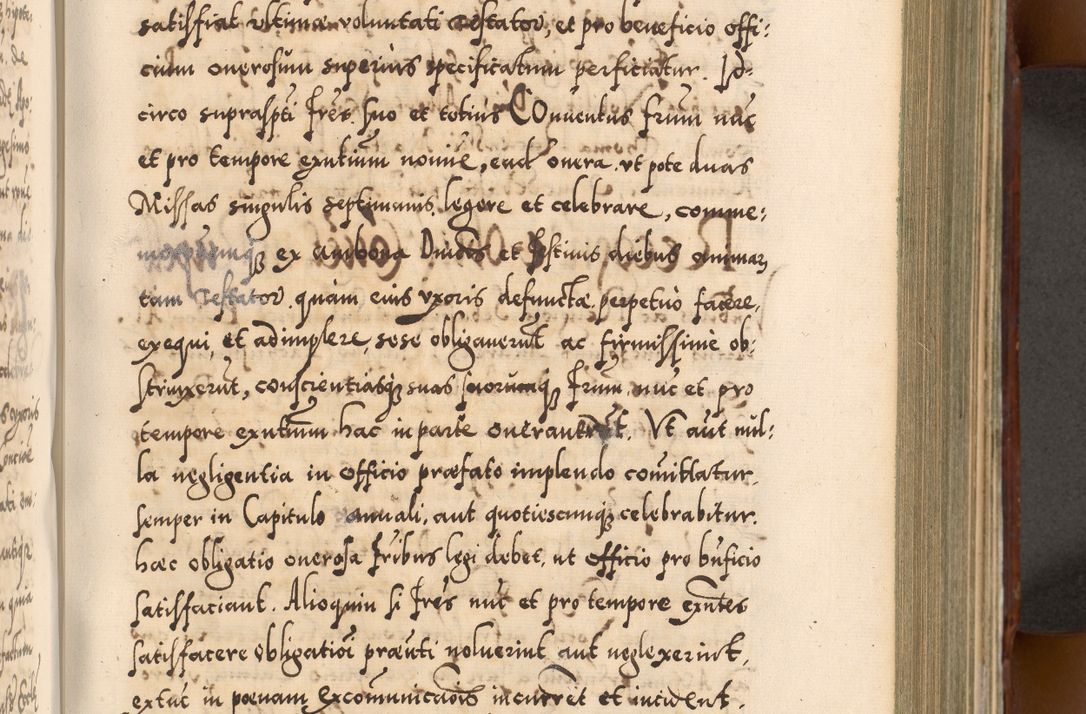 satisfiat ultimæ voluntati Testator, et pro beneficio offi:
cium onerosum superius specificatum perficiatur. Id=
circo suprasپti frēs suo et totius Conventus frum nūc
et pro tempore exntium noīe, eād onera. vt pote duas
Missas singulis septimanis legere et celebrare, comme:
ex ambona Dnicis et festivis diebus animarz
tam Testator. quam eius vxoris defunctæ. perpetuo facere,
exequi, et adimplere, sese obligaverūt ac firmissime ob:
strinxerūt, conscientiasq; suas suorumq; frum nūc et pro
tempore exntium hac in parte onerantes. Vt aūt nul:
la negligentia in officio præfato implendo com̄ittatur.
semper in Capitulo annuali, aut quotiescunq; celebrabitur.
hæc obligatio onerosa fribus legi debet, ut officio pro būficio
satisfaciant. Alioquin si frēs nūc et pro tempore exntes
satisfacere obligatiōi præūti noluerint aut neglexerint.
extūc in pœnam excom̄unicaōis incurrēt et incident.